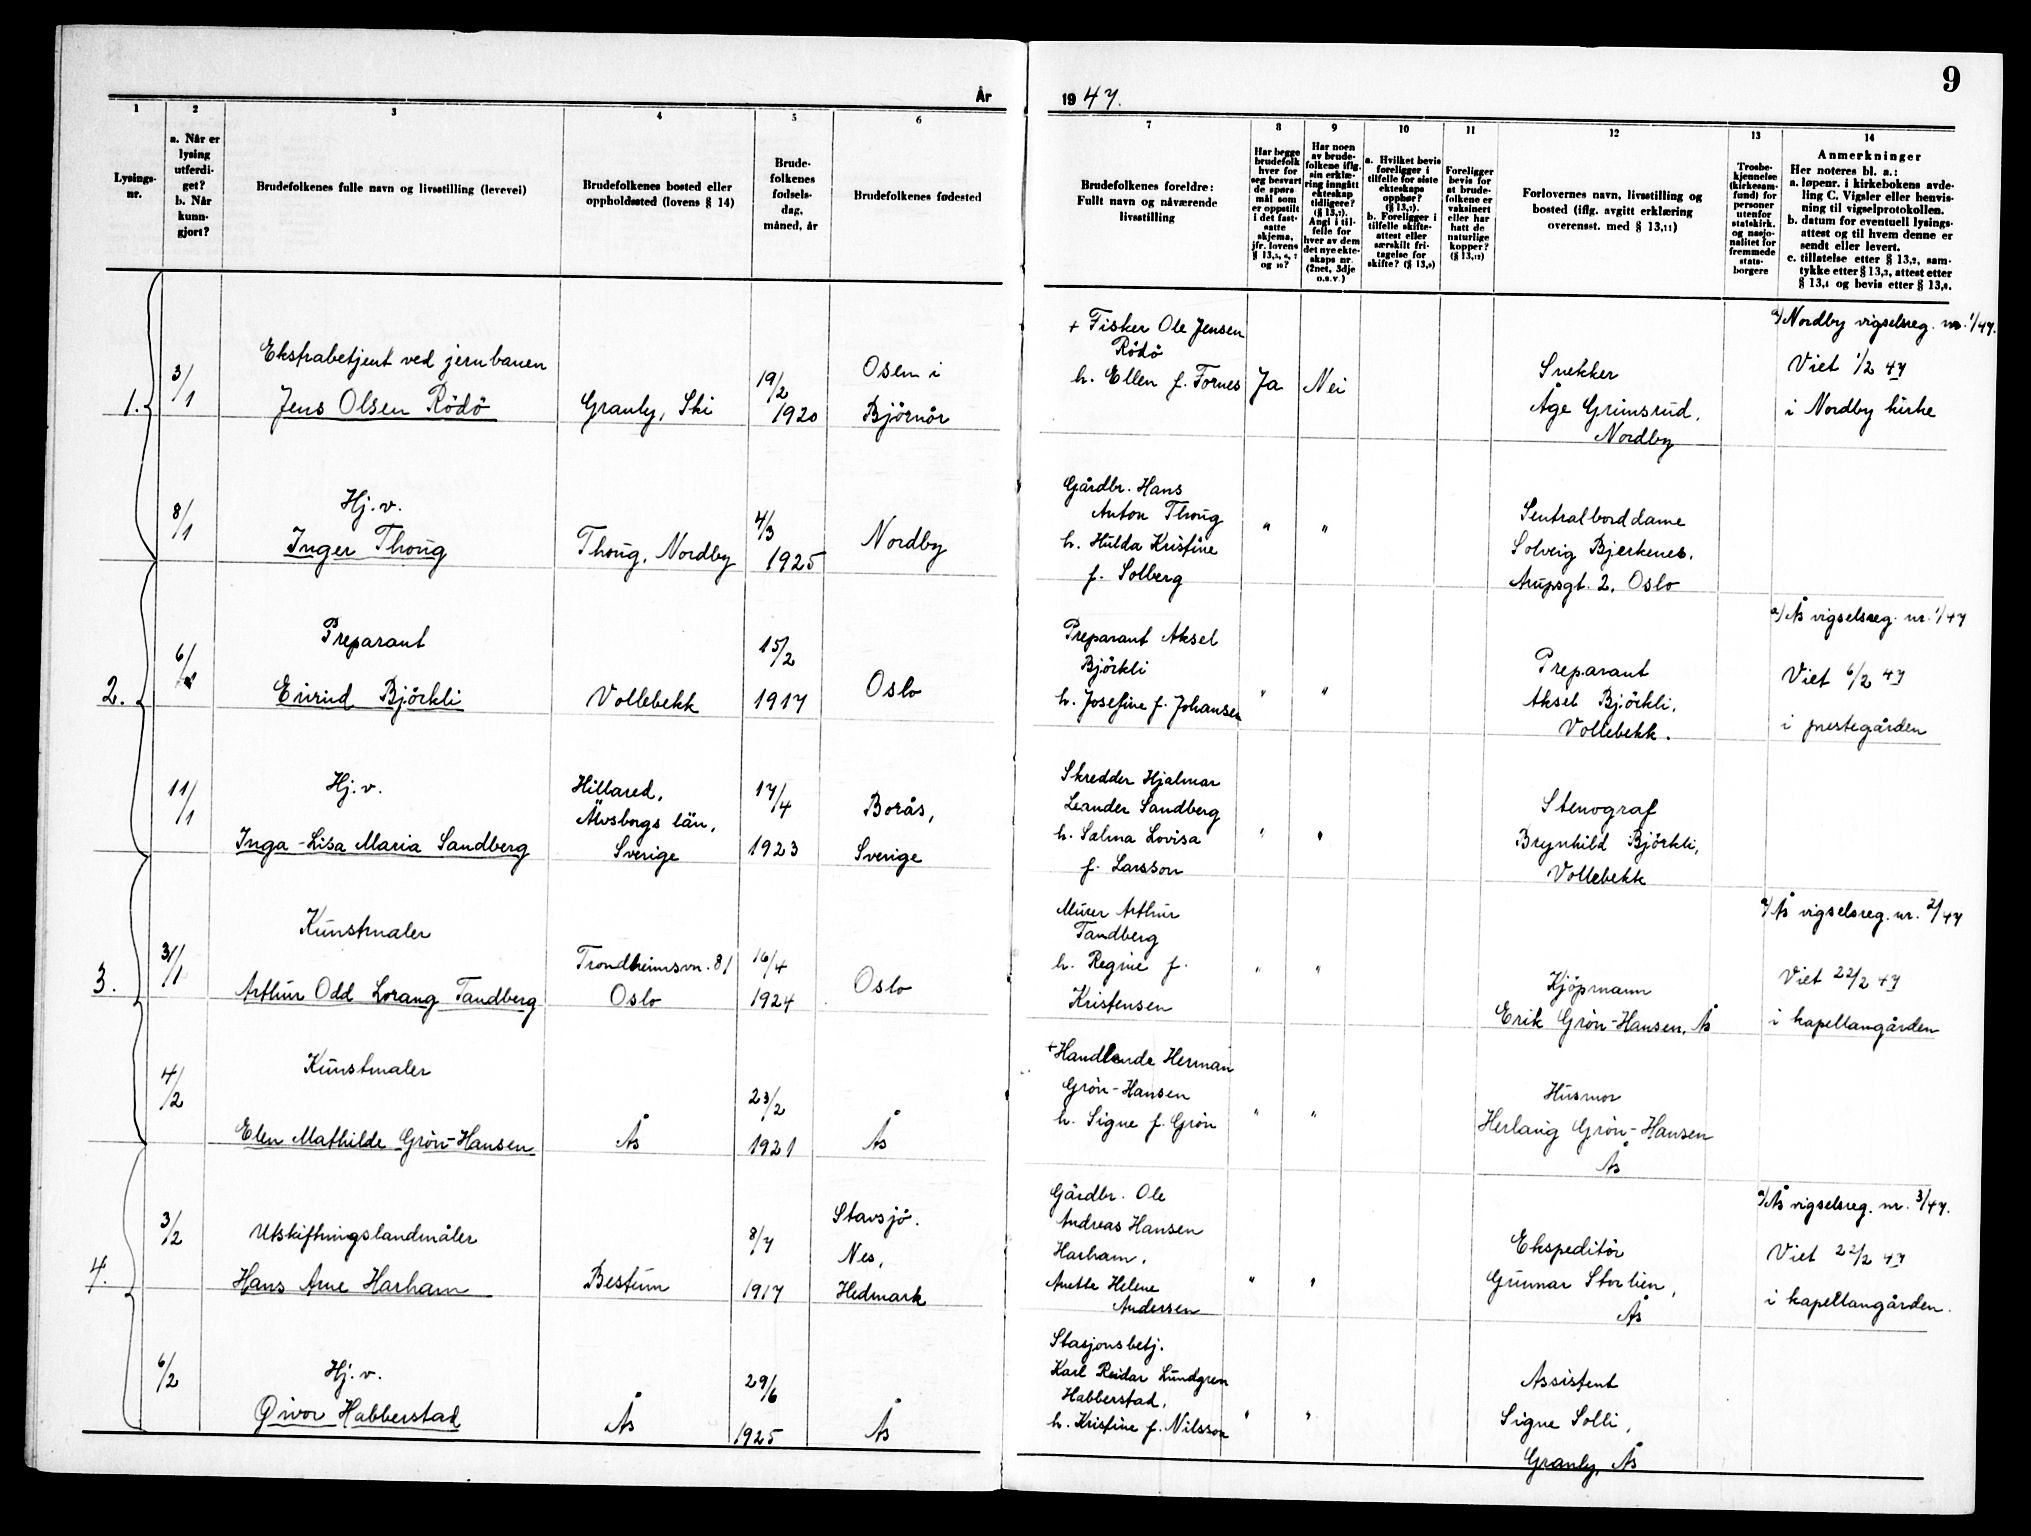 9
År
19 47.
1
2
3
4
5
6
7
8
9
10
11
12
13
14
Lysings-
nr.
a. Når er
lysing
utferdi-
get?
b. Når
kunn-
gjort?
Brudefolkenes fulle navn og livsstilling (levevei)
Brudefolkenes bosted eller
oppholdssted (lovens § 14)
Brude-
folkenes
fødsels-
dag,
måned, år
Brudefolkenes fødested
Brudefolkenes foreldre:
Fullt navn og nåværende
livsstilling
Har begge
brudefolk
hver for
seg besvart
de spørs
mål som
er oppstilt
i det fast-
satte
skjema,
jfr. lovens
§ 13,5, 6, 7
og 10?
Har noen
av brude-
folkene iflg.
sin erklæ-
ring inngått
ekteskap
tidligere?
(§ 13,7).
Angi i til-
felle for
hver av dem
det nye ekte-
skaps nr.
(2net, 3dje
o.s.v.)
a. Hvilket bevis
foreligger i
tilfelle for siste
ekteskaps
opphør?
(§ 13,7).
b. Foreligger i
tilfelle skifte-
attest eller
særskilt fri-
tagelse for
skifte? (§ 13,8)
Foreligger
bevis for
at brude-
folkene er
vaksinert
eller har
hatt de
naturlige
kopper?
(§ 13,12)
Forlovernes navn, livsstilling og
bosted (iflg. avgitt erklæring
overensst. med § 13,11)
Trosbe-
kjennelse
(kirkesam-
fund) for
personer
utenfor
statskirk.
og nasjo-
nalitet for
fremmede
stats-
borgere
Anmerkninger
Her noteres bl. a.:
a. løpenr. i kirkebokens avde-
ling C. Vigsler eller henvis-
ning til vigselprotokollen.
b. datum for eventuell lysings-
attest og til hvem denne er
sendt eller levert.
c. tillatelse etter § 13,2, sam-
tykke etter § 13,3, attest etter
§ 13,4 og bevis etter § 13,8.
1.
3/1
Ekstrabetjent ved jernbanen
Jens Olsen Rödö
Granly, Ski
19/2
1920
Osen i
Björnör
+ Fisker Ole Jensen
Rödö
h. Ellen f. Fornes
Ja
Nei
Snekker
Åge Grimsrud,
Nordby
a) Nordby vigselsreg. nr. 1/47.
Viet 1/2 47
i Nordby kirke
8/1
Hj.v.
Inger Thoug
Thoug, Nordby
4/3
1925
Nordby
Gårdbr. Hans
Anton Thoug
h. Hulda Kristine
f. Solberg
"
"
Sentralborddame
Solveig Bjerkenes,
Arupsgt. 2, Oslo
2.
6/1
Preparant
Eivind Björkli
Vollebekk
15/2
1917
Oslo
Preparant Aksel
Björkli
h. Josefine f. Johansen
"
"
Preparant
Aksel Björkli,
Vollebekk.
a) Ås vigselsreg. nr. 1/47
Viet 6/2 47
i prestegården
11/1
Hj.v.
Inga-Lisa Maria Sandberg
Hillared,
Älvsborgs län,
Sverige
17/4
1923
Borås,
Sverige
Skredder Hjalmar
Leander Sandberg
h. Salma Lovisa
f. Larsson
"
"
Stenograf
Brynhild Björkli,
Vollebekk
3.
31/1
Kunstmaler
Arthur Odd Lorang Tandberg
Trondheimsvn. 81
Oslo
16/4
1924
Oslo
Murer Arthur
Tandberg
h. Regine f.
Kristensen
"
"
Kjöpmann
Erik Grön-Hansen, Ås
a) Ås vigselsreg. nr. 2/47
Viet 22/2 47
i kapellangården
4/2
Kunstmaler
Elen Mathilde Grön-Hansen
Ås
23/2
1921
Ås
+ Handlende Herman
Grön-Hansen
h. Signe f. Grön
"
"
Husmor
Herlaug Grön-Hansen
Ås
4.
3/2
Utskiftningslandmåler
Hans Arne Harham
Bestum
8/7
1917
Stavsjö.
Nes,
Hedmark
Gårdbr. Ole
Andreas Hansen
Harham,
Anette Helene
Andersen
"
"
Ekspeditör
Gunnar Storlien,
Ås
a) Ås vigselsreg. nr. 3/47.
Viet 22/2 47
i kapellangården.
6/2
Hj.v.
Øivor Habberstad
Ås
29/6
1925
Ås
Stasjonsbetj.
Karl Reidar Lundgren
Habberstad,
h. Kristine f. Nilsson
"
"
Assistent
Signe Solli,
Granly, Ås